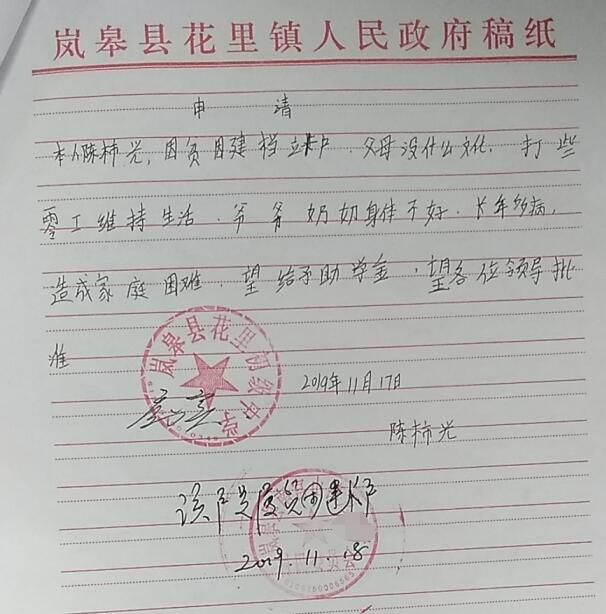 岚皋县花里镇人民政府稿纸
申 请
本人陈柿光,因贫困建档立卡户.父母没什么文化.打些
零工维持生活.爷爷奶奶身体不好.长年多病,
造成家庭困难.望给予助学金.望各位领导批
准
岚皋县花里初级中学
2019年11月17日
陈柿光
该户是贫困建卡户
2019.11.18